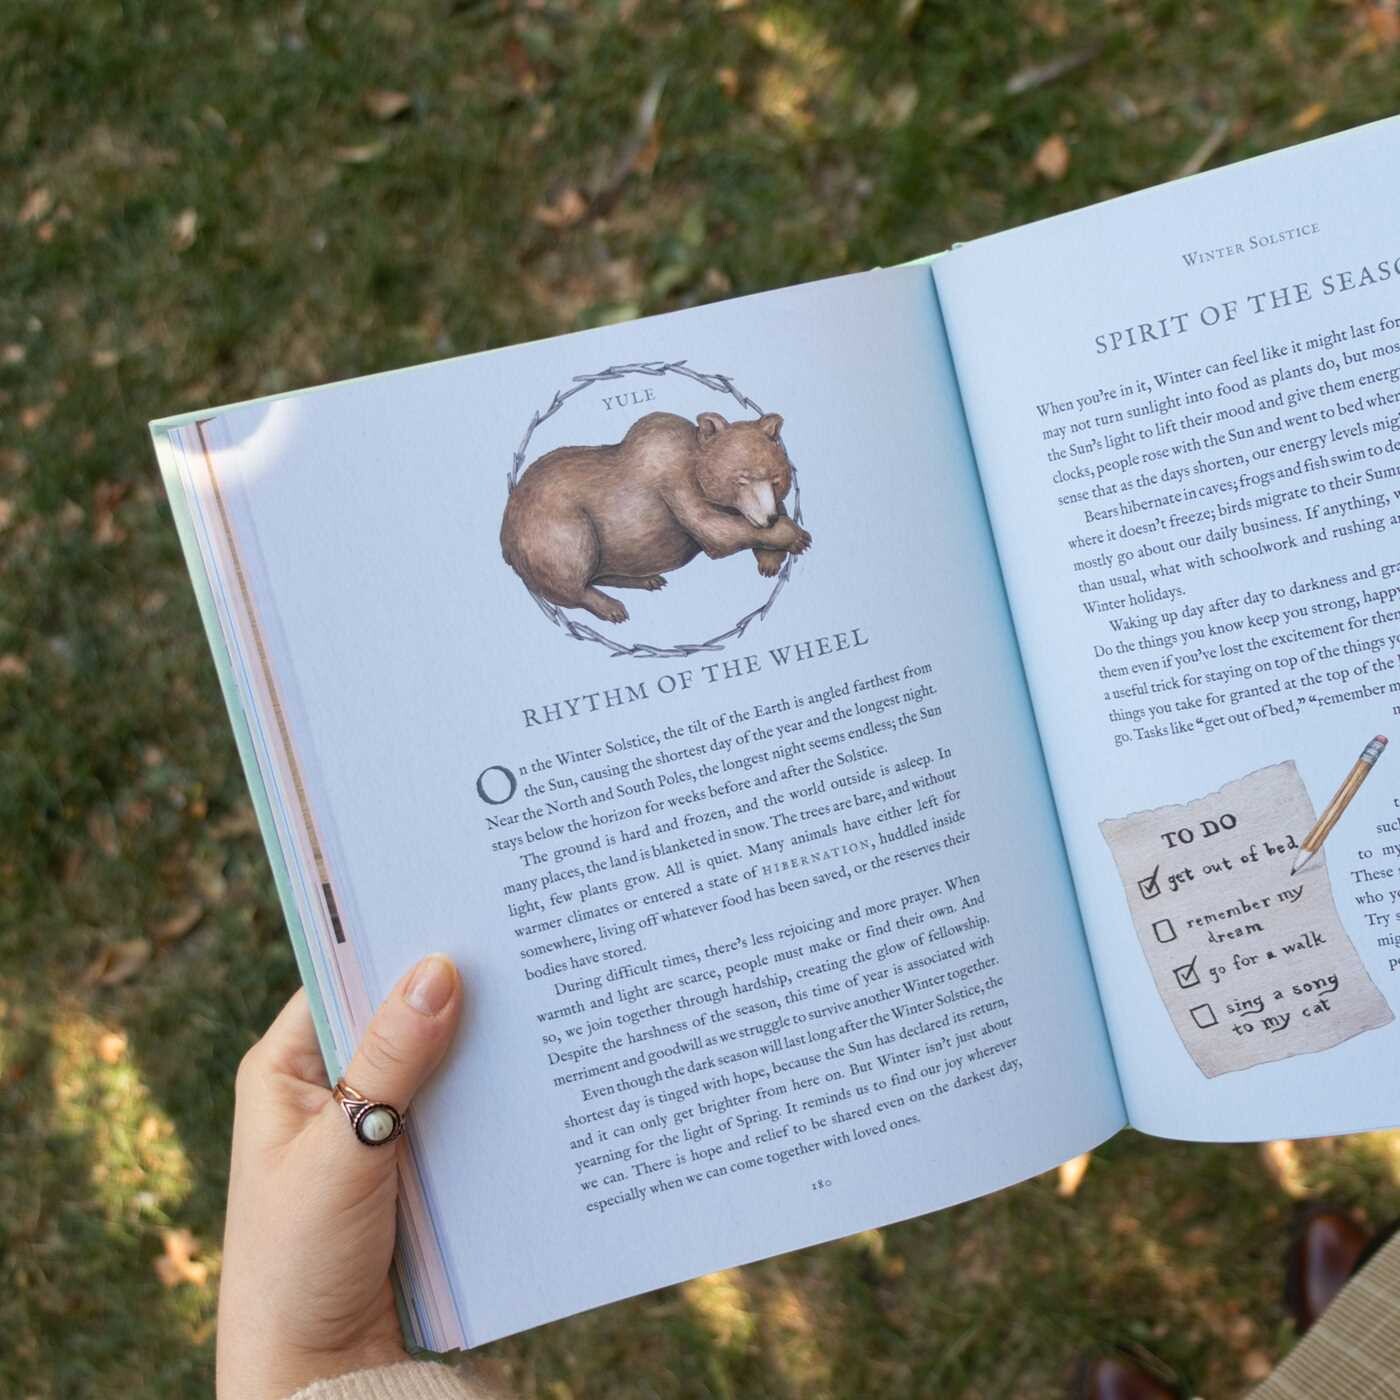 YULE
RHYTHM OF THE WHEEL
On the Winter Solstice, the tilt of the Earth is angled farthest from
the Sun, causing the shortest day of the year and the longest night.
Near the North and South Poles, the longest night seems endless; the Sun
stays below the horizon for weeks before and after the Solstice.
The ground is hard and frozen, and the world outside is asleep. In
many places, the land is blanketed in snow. The trees are bare, and without
light, few plants grow. All is quiet. Many animals have either left for
warmer climates or entered a state of HIBERNATION, huddled inside
somewhere, living off whatever food has been saved, or the reserves their
bodies have stored.
During difficult times, there's less rejoicing and more prayer. When
warmth and light are scarce, people must make or find their own. And
so, we join together through hardship, creating the glow of fellowship.
Despite the harshness of the season, this time of year is associated with
merriment and goodwill as we struggle to survive another Winter together.
Even though the dark season will last long after the Winter Solstice, the
shortest day is tinged with hope, because the Sun has declared its return,
and it can only get brighter from here on. But Winter isn't just about
yearning for the light of Spring. It reminds us to find our joy wherever
we can. There is hope and relief to be shared even on the darkest day,
especially when we can come together with loved ones.
180
WINTER SOLSTICE
SPIRIT OF THE
When you're in it, Winter can feel like it might last
may not turn sunlight into food as plants do, but
the Sun's light to lift their mood and give them
clocks, people rose with the Sun and went to bed
sense that as the days shorten, our energy levels
Bears hibernate in caves; frogs and fish swim to
where it doesn't freeze; birds migrate to their
mostly go about our daily business. If anything,
than usual, what with schoolwork and rushing
Winter holidays.
Waking up day after day to darkness and
Do the things you know keep you strong,
them even if you've lost the excitement for
a useful trick for staying on top of the things
things you take for granted at the top of the
go. Tasks like "get out of bed," "remember
to my
These
who
Try
TO DO
get out of bed
remember my
dream
go for a walk
sing a song
to my cat